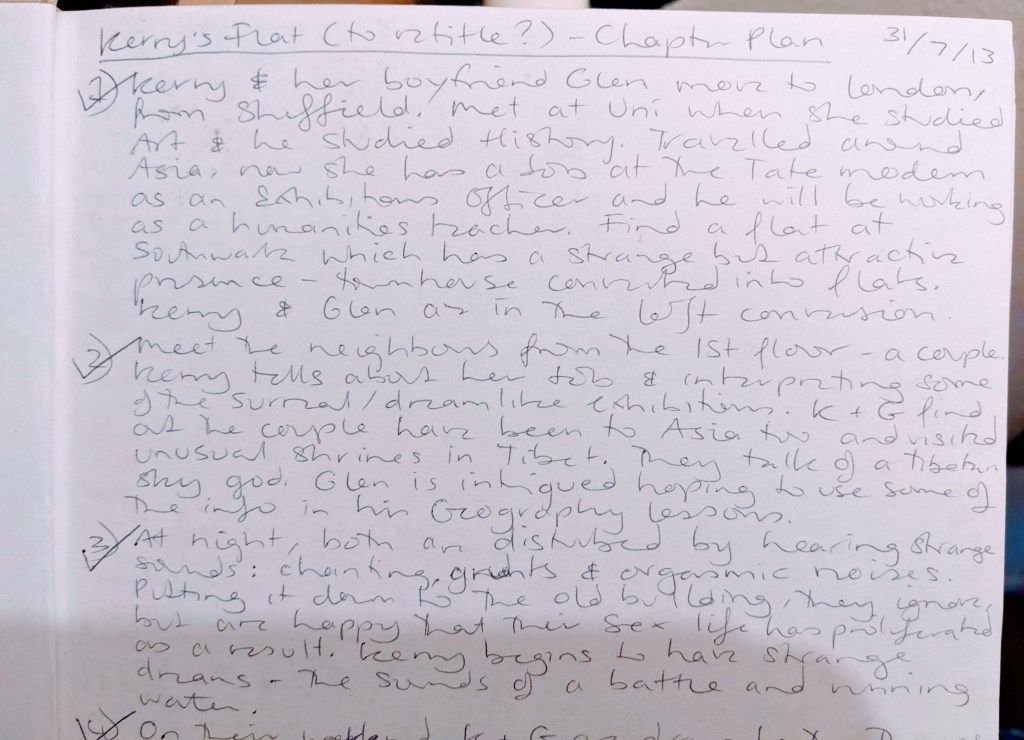 Kerry's Flat (to retitle?) - Chapter Plan 31/7/13
1) Kerry & her boyfriend Glen move to London,
from Sheffield. Met at Uni when she studied
Art & he studied History. Travelled around
Asia, now she has a job at the Tate modern
as an Exhibitions Officer and he will be working
as a humanities teacher. Find a flat at
Southwark which has a strange but attractive
presence - townhouse converted into flats.
Kerry & Glen are in the loft conversion.
2) Meet the neighbours from the 1st floor - a couple.
Kerry tells about her job & interpreting some
of the surreal/dreamlike exhibitions. K + G find
out the couple have been to Asia too and visited
unusual shrines in Tibet. They talk of a Tibetan
sky god. Glen is intrigued hoping to use some of
the info in his Geography lessons.
3) At night, both are disturbed by hearing strange
sounds: chanting, grunts & orgasmic noises.
Putting it down to the old building, they ignore,
but are happy that their sex life has proliferated
as a result. Kerry begins to have strange
dreams - the sounds of a battle and running
water.
4) On their K + G